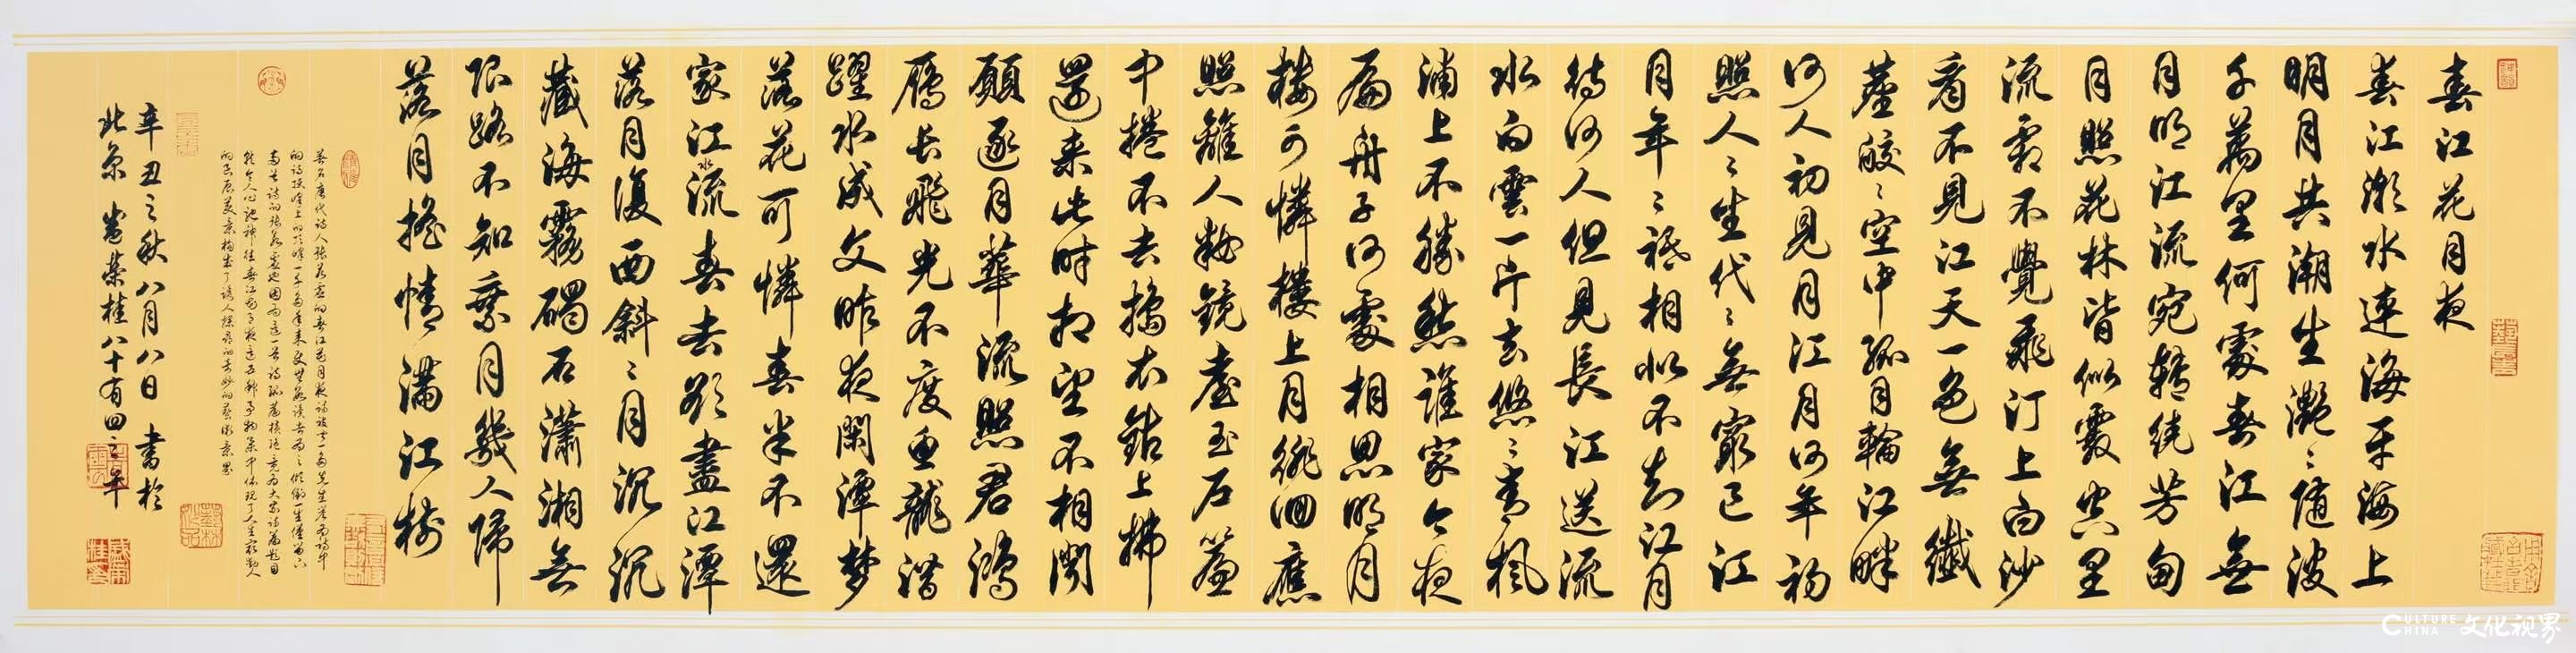 春江花月夜
春江潮水連海平海上
明月共潮生灩〻隨波
千萬里何處春江無
月明江流宛轉繞芳甸
月照花林皆似霰空里
流霜不覺飛汀上白沙
看不見江天一色無纖
塵皎〻空中孤月輪江畔
何人初見月江月何年初
照人〻生代〻無窮已江
月年〻祗相似不知江月
待何人但見長江送流
水白雲一片去悠〻青楓
浦上不勝愁誰家今夜
扁舟子何處相思明月
樓可憐樓上月徘徊應
照離人妝鏡臺玉戶簾
中捲不去擣衣砧上拂
還來此時相望不相聞
願逐月華流照君鴻
雁長飛光不度魚龍潛
躍水成文昨夜閑潭夢
落花可憐春半不還
家江水流春去欲盡江潭
落月復西斜〻月沉沉
藏海霧碣石瀟湘無
限路不知乘月幾人歸
落月搖情滿江樹
辛丑之秋八月八日書於
北京 榮桂八十有四之年
CULTURE CHINA 文化视界